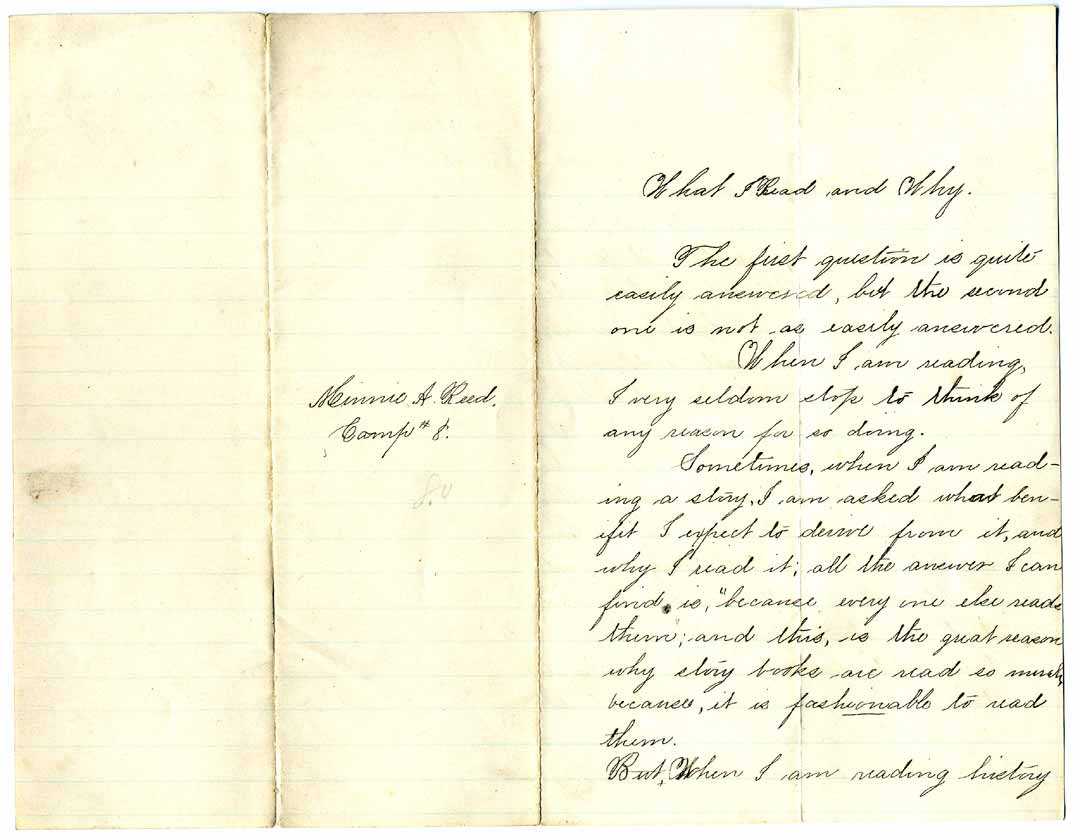 Minnie A. Reed.
Camp # 8.
80
What I Read and Why.
The first question is quite
easily answered, but the second
one is not as easily answered.
When I am reading,
I very seldom stop to think of
any reason for so doing.
Sometimes, when I am read-
ing a story, I am asked what ben-
ifit I expect to derive from it, and
why I read it; all the answer I can
find is, "because every one else reads
them; and this, is the great reason
why story books are read so much,
because, it is fashionable to read
them.
But, When I am reading history